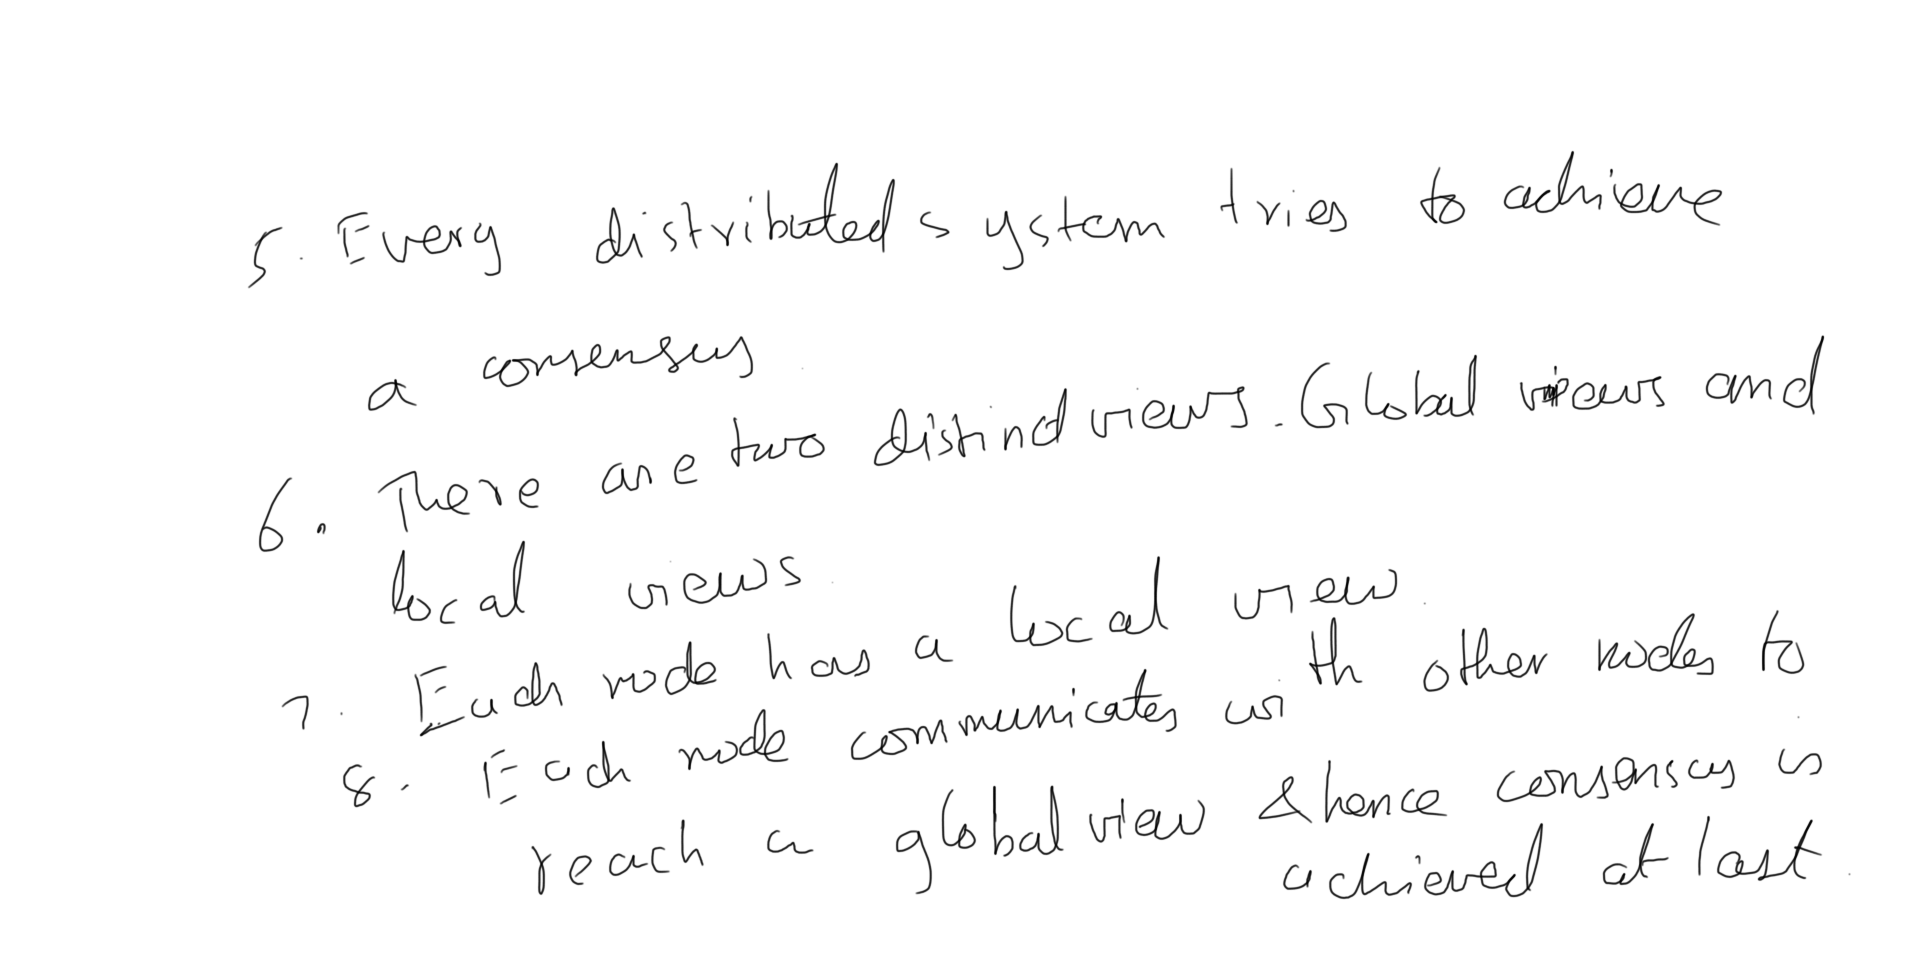 5. Every distributed system tries to achieve
a consensus
6. There are two distinct views. Global views and
local views
7. Each node has a local view
8. Each node communicates with other nodes to
reach a global view & hence consensus is
achieved at last